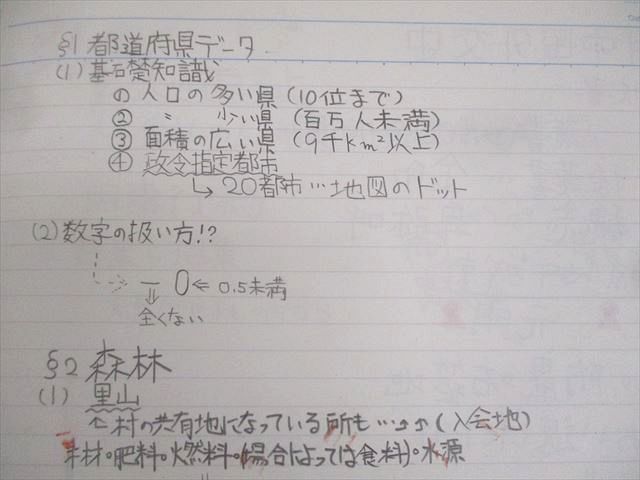 §1 都道府県データ
(1) 基礎知識
① 人口の多い県 (10位まで)
② 〃 少い県 (百万人未満)
③ 面積の広い県 (9千km²以上)
④ 政令指定都市
↳ 20都市…地図のドット
(2) 数字の扱い方!?
— 0 ⇐ 0.5未満
⇓
全くない
§2 森林
(1) 里山
↑村の共有地になっている所も…↑↑(入会地)
木材・肥料・燃料・(場合によっては食料)・水源